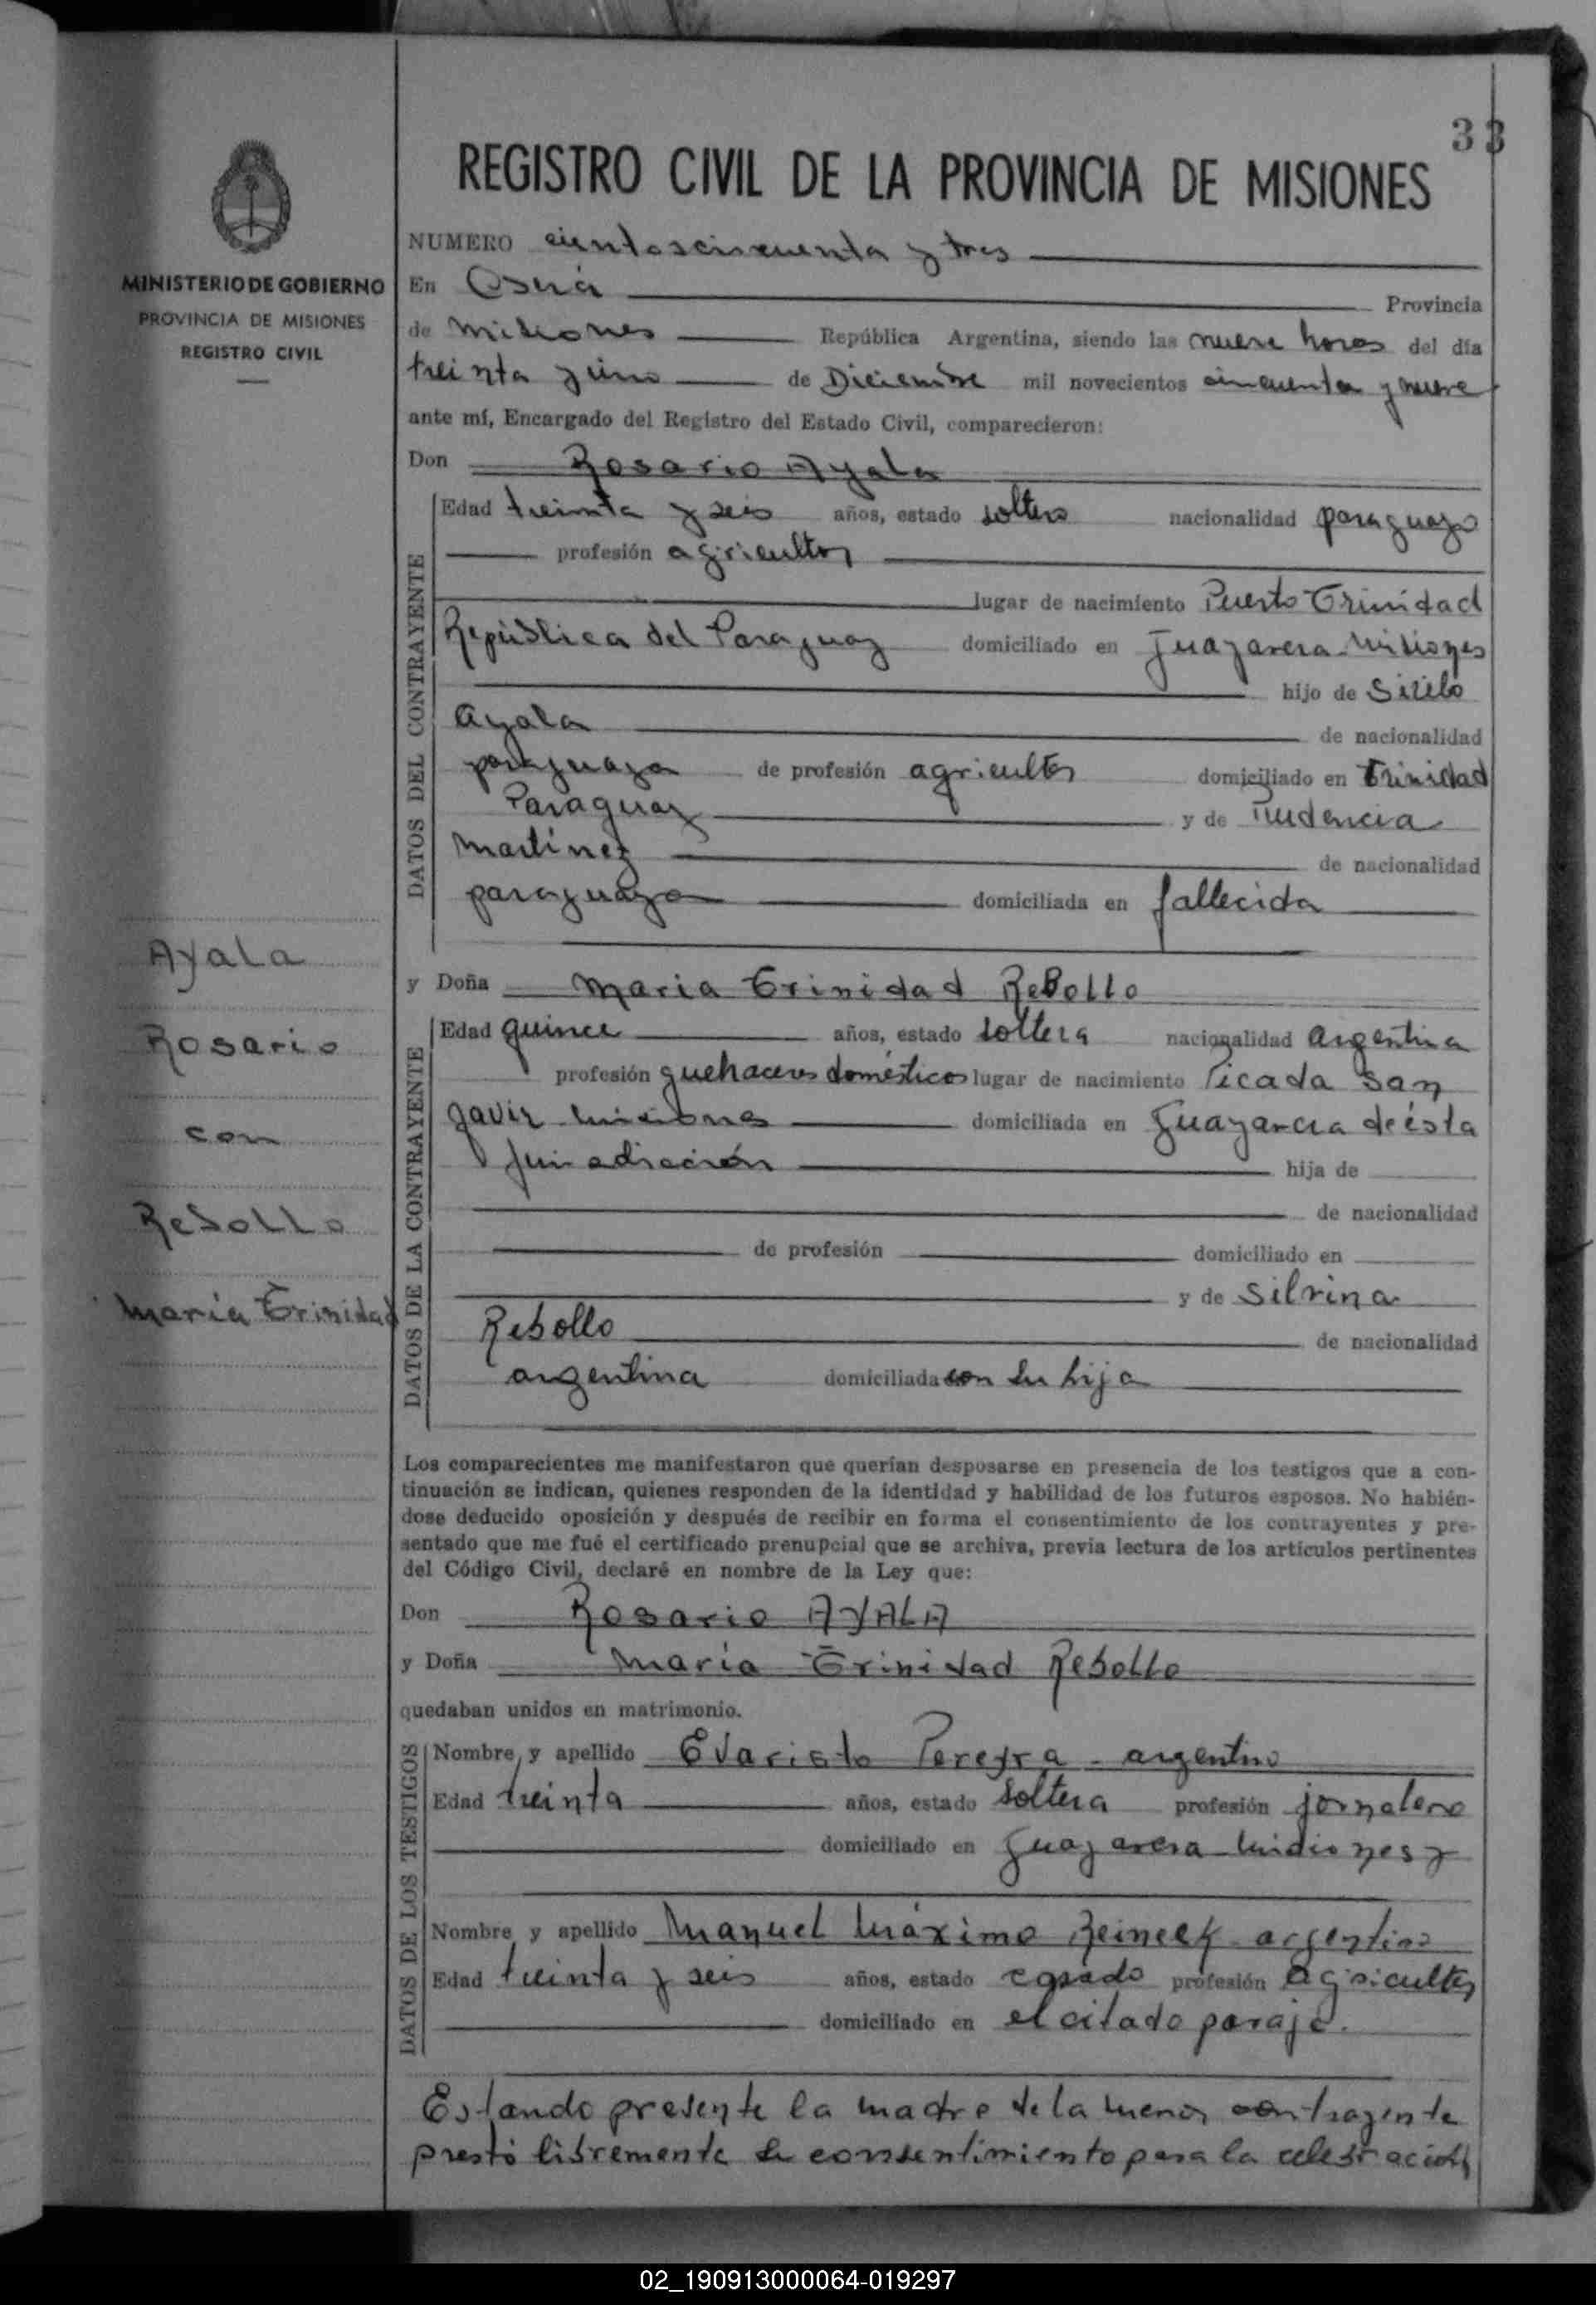 33
REGISTRO CIVIL DE LA PROVINCIA DE MISIONES
MINISTERIO DE GOBIERNO
PROVINCIA DE MISIONES
REGISTRO CIVIL
NUMERO cientoscincuenta y tres
En Oberá Provincia
de Misiones República Argentina, siendo las nueve horas del día
treinta y uno de Diciembre mil novecientos cincuenta y nueve
ante mí, Encargado del Registro del Estado Civil, comparecieron:
Don Rosario Ayala
DATOS DEL CONTRAYENTE
Edad treinta y seis años, estado soltero nacionalidad paraguayo
profesión agricultor
lugar de nacimiento Puerto Trinidad
República del Paraguay domiciliado en Guayarera Misiones
hijo de Sirilo
Ayala de nacionalidad
paraguaya de profesión agricultor domiciliado en Trinidad
Paraguay y de Prudencia
Martinez de nacionalidad
paraguaya domiciliada en fallecida
Ayala
Rosario
con
Rebollo
María Trinidad
y Doña Maria Trinidad Rebollo
DATOS DE LA CONTRAYENTE
Edad quince años, estado soltera nacionalidad argentina
profesión quehaceres domésticos lugar de nacimiento Picada San
Javir Misiones domiciliada en Guayarera de ésta
jurisdicción hija de
de nacionalidad
de profesión domiciliado en
y de Silvina
Rebollo de nacionalidad
argentina domiciliada con su hija
Los comparecientes me manifestaron que querían desposarse en presencia de los testigos que a con-
tinuación se indican, quienes responden de la identidad y habilidad de los futuros esposos. No habién-
dose deducido oposición y después de recibir en forma el consentimiento de los contrayentes y pre-
sentado que me fué el certificado prenupcial que se archiva, previa lectura de los artículos pertinentes
del Código Civil, declaré en nombre de la Ley que:
Don Rosario AYALA
y Doña María Trinidad Rebollo
quedaban unidos en matrimonio.
DATOS DE LOS TESTIGOS
Nombre y apellido Evaristo Pereyra - argentino
Edad treinta años, estado soltera profesión jornalero
domiciliado en Guayarera Misiones y
Nombre y apellido Manuel Máximo Reineck argentino
Edad treinta y seis años, estado casado profesión agricultor
domiciliado en el citado paraje.
Estando presente la madre de la menor contrayente
prestó libremente su consentimiento para la celebración
02_190913000064-019297